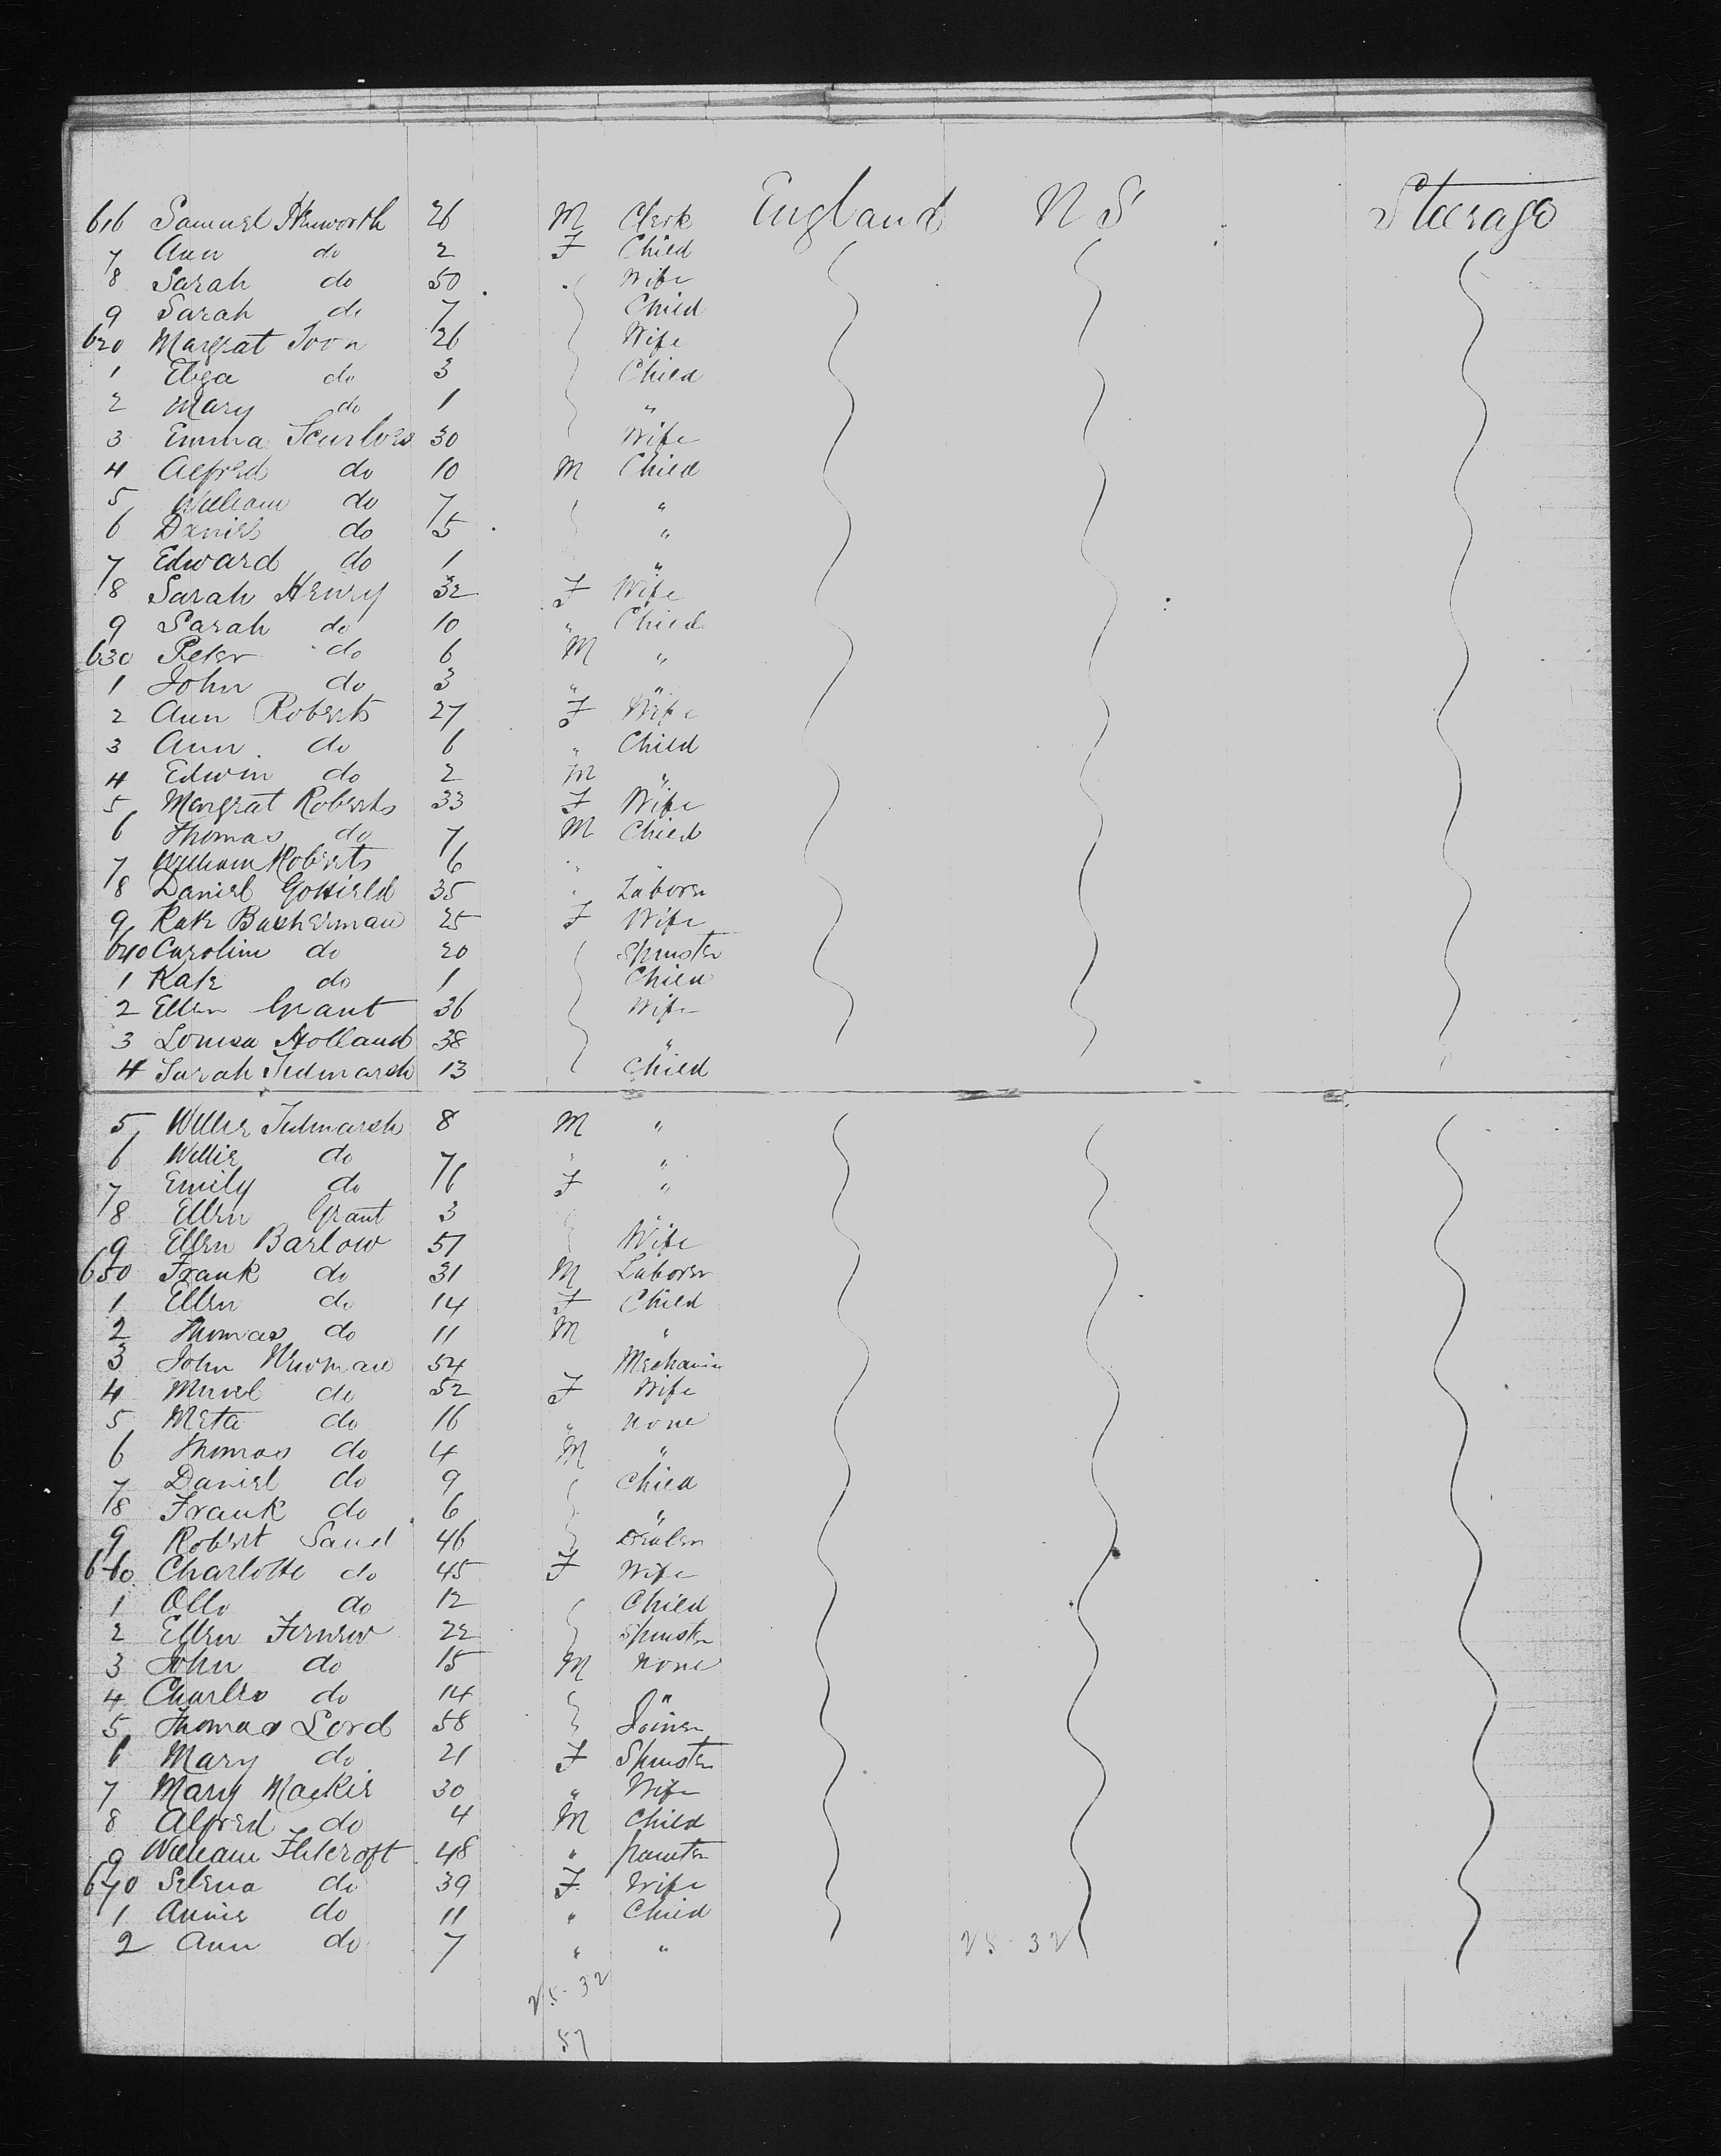 616 Samuel Henworth 26 M Clerk England N S Steerage
7 Ann do 2 F Child
8 Sarah do 50 Wife
9 Sarah do 7 Child
620 Margrat Toon 26 Wife
1 Eliza do 3 Child
2 Mary do 1 "
3 Emma 30 Wife
4 Alfred do 10 M Child
5 William do 7 "
6 Daniel do 5 "
7 Edward do 1 "
8 Sarah Henry 32 F Wife
9 Sarah do 10 " Child
630 Peter do 6 M "
1 John do 3 " "
2 Ann Roberts 27 F Wife
3 Ann do 6 " Child
4 Edwin do 2 M "
5 Margrat Roberts 33 F Wife
6 Thomas do 7 M Child
7 William Roberts 6 " "
8 Daniel 35 " Laborer
9 Kate Bucherman 25 F Wife
640 Carolin do 20 Spinster
1 Kate do 1 Child
2 Ellen Grant 36 Wife
3 Louisa Holland 38 "
4 Sarah Tidmarsh 13 Child
5 Willie Tidmarsh 8 M "
6 Willie do 7 " "
7 Emily do 6 F "
8 Ellen Grant 3 "
9 Ellen Barlow 51 Wife
650 Frank do 31 M Laborer
1 Ellen do 14 F Child
2 Thomas do 11 M "
3 John Newman 54 Mechanic
4 do 52 F Wife
5 Meta do 16 " None
6 Thomas do 4 M "
7 Daniel do 9 Child
8 Frank do 6 "
9 Robert Sand 46 Dealer
660 Charlotte do 45 F Wife
1 Otto do 12 Child
2 Ellen 22 Spinster
3 John do 15 M None
4 Charles do 14 "
5 Thomas Lord 58 Joiner
6 Mary do 21 F Spinster
7 Mary Mackie 30 " Wife
8 Alfred do 4 M Child
9 William Flitcroft 48 " painter
670 Selena do 39 F Wife
1 Annie do 11 " Child
2 Ann do 7 " " 25-32
25-32
57